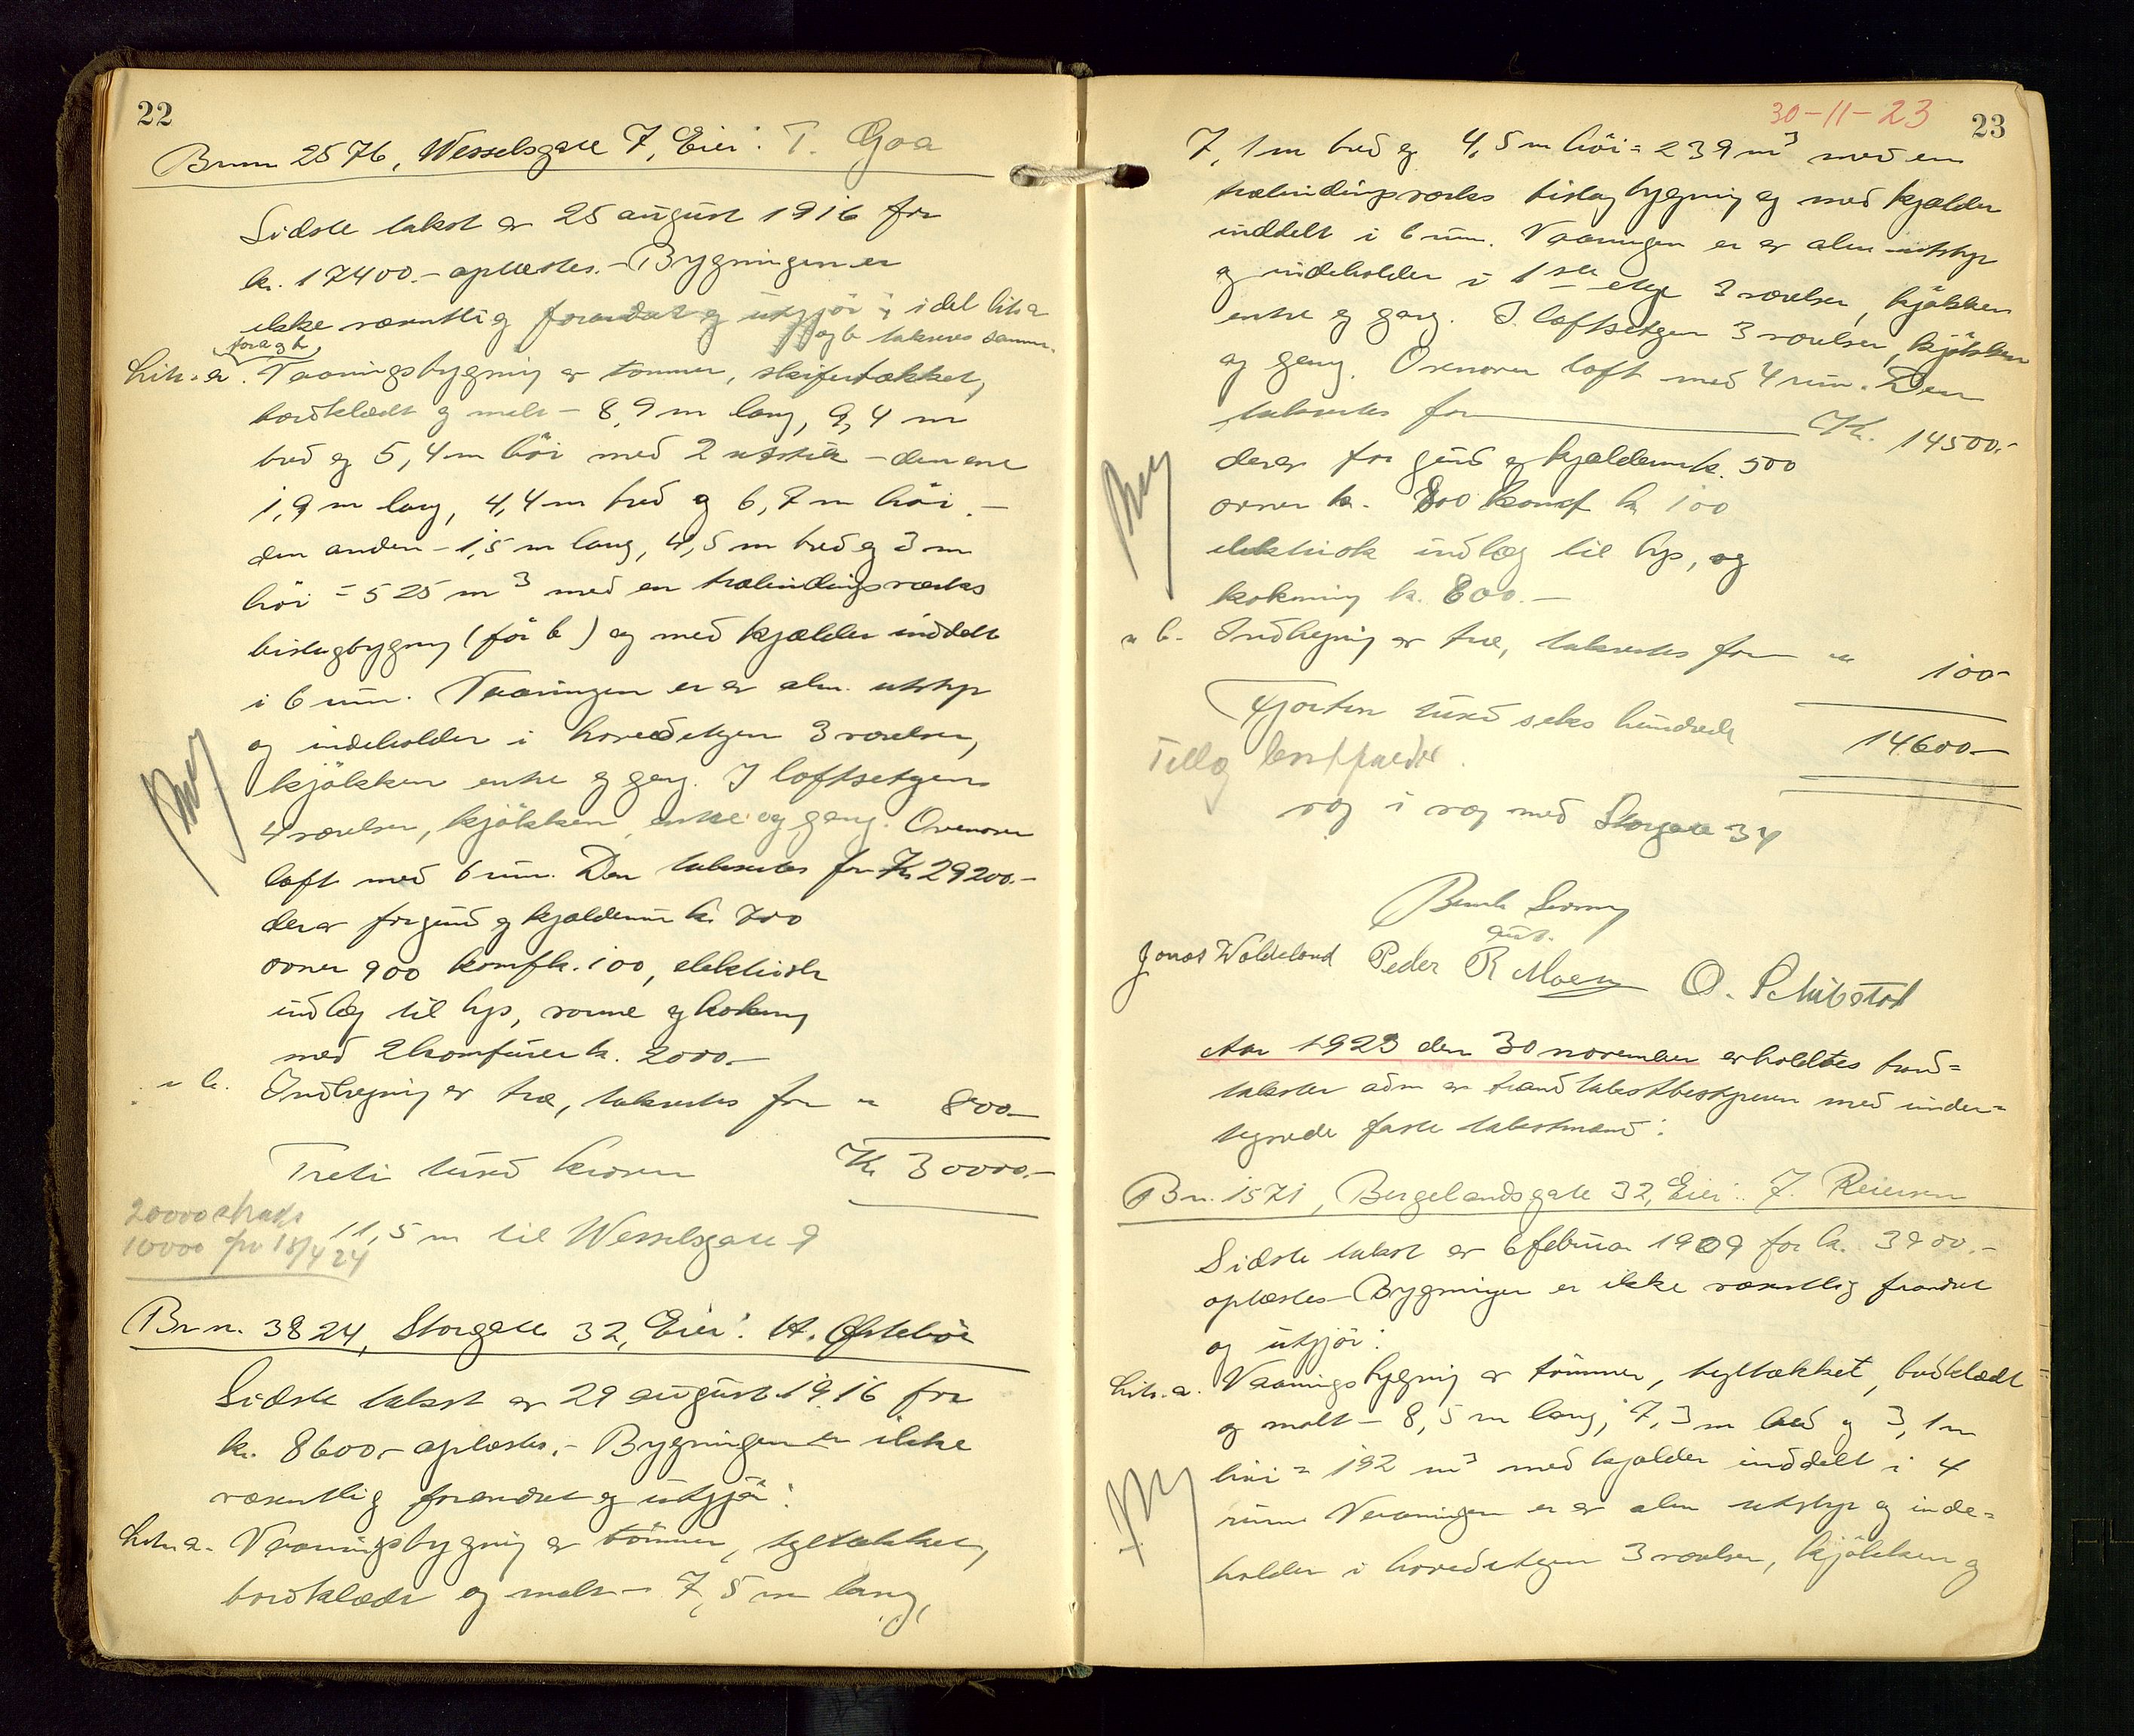 22
Brnm 2576, Wesselsgate 7, Eier: T. Goa
Sidste takst av 25 august 1916 for
kr. 17400.- oplæstes. - Bygningen er
ikke væsentlig forandret og utgjör: idet litr a
og b takseres samm.
för a og b
Litr. a. Vaaningsbygning av tömmer, skifertækket,
bordklædt og malt - 8,9 m lang, 9,4 m
bred og 5,4 m höi med 2 utstik - den ene
1,9 m lang, 4,4 m bred og 6,7 m höi. -
den anden - 1,5 m lang, 4,5 m bred og 3 m
höi = 525 m³ med en træbindingsverks
bislagbygning (för b) og med kjælder inddelt
i 6 rum. Vaaningen er av alm. utstyr
og indeholder i hovedetgen 3 værelser,
kjökken entre og gang. I loftsetgen
4 værelser, kjökken, entre og gang. Ovenover
loft med 6 rum. Den takseres for Kr 29200.-
derav for grund og kjældermur kr. 700
ovner 900 komf kr. 100, elektrisk
indlæg til lys, varme og kokning
med 2 komfürer kr. 2000.-
" b. Indhegning av træ, takseres for " 800.-
Treti tusend kroner Kr 30000.-
20000 straks
10000 fra 18/4 24
11,5 m til Wesselsgate 9
Brn. 3824, Storgate 32, Eier: A. Østebö
Sidste takst av 29 august 1916 for
kr. 8600.- oplæstes. - Bygningen er ikke
væsentlig forandret og utgjör:
Litr. a. Vaaningsbygning av tömmer, tegltækket,
bordklædt og malt - 7,5 m lang,
30-11-23
23
7,1 m bred og 4,5 m höi = 239 m³ med en
træbindingsverks bislagbygning og med kjælder
inddelt i 6 rum. Vaaningen er av alm utstyr
og indeholder i 1ste etge 3 værelser, kjökken
entre og gang. I loftsetgen 3 værelser, kjökken
og gang. Ovenover loft med 4 rum. Den
takseres for Kr. 14500.-
derav for grund og kjældermur kr. 500
ovner kr. 800 komf kr 100
elektrisk indlæg til lys, og
kokning kr. 800.-
" b. Indhegning av træ, takseres for " 100.-
Fjorten tusend seks hundrede 14600.-
Tillæg
væg i væg med Storgate 34
Jonas Waldeland Peder R Moen O. Schibstad
Aar 1923 den 30 november avholdtes brand=
takster adm av brandtakstbestyreren med under=
tegnede faste takstmænd:
Brn. 1571, Bergelandsgate 32, Eier: J. Reiersen
Sidste takst av 6 februar 1909 for kr. 3900.-
oplæstes - Bygningen er ikke væsentlig forandret
og utgjör:
Litr. a. Vaaningsbygning av tömmer, tegltækket, bordklædt
og malt - 8,5 m lang, 7,3 m bred og 3,1 m
höi = 192 m³ med kjælder inddelt i 4
rum. Vaaningen er av alm utstyr og inde=
holder i hovedetgen 3 værelser, kjökken og